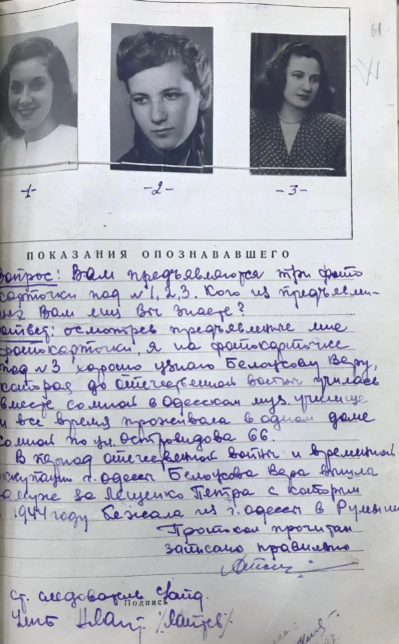 61
-1-
-2-
-3-
ПОКАЗАНИЯ ОПОЗНАВАВШЕГО
Вопрос: Вам предъявляются три фото
карточки под №1,2,3. Кого из предъявлен-
ных Вам лиц Вы знаете?
Ответ: осмотрев предъявленные мне
фотокарточки, я на фотокарточке
под №3 хорошо узнаю Белоусову Веру,
которая до отечественной войны училась
вместе со мной в Одесском муз. училище
и все время проживала в одном доме
со мной по ул. Островидова 66.
В период отечественной войны и временной
оккупации г. Одессы Белоусова Вера вышла
замуж за Лещенко Петра с которым
в 1944 году бежала из г. Одессы в Румынию
Протокол прочитан
записано правильно
Подпись
Ст. следователь